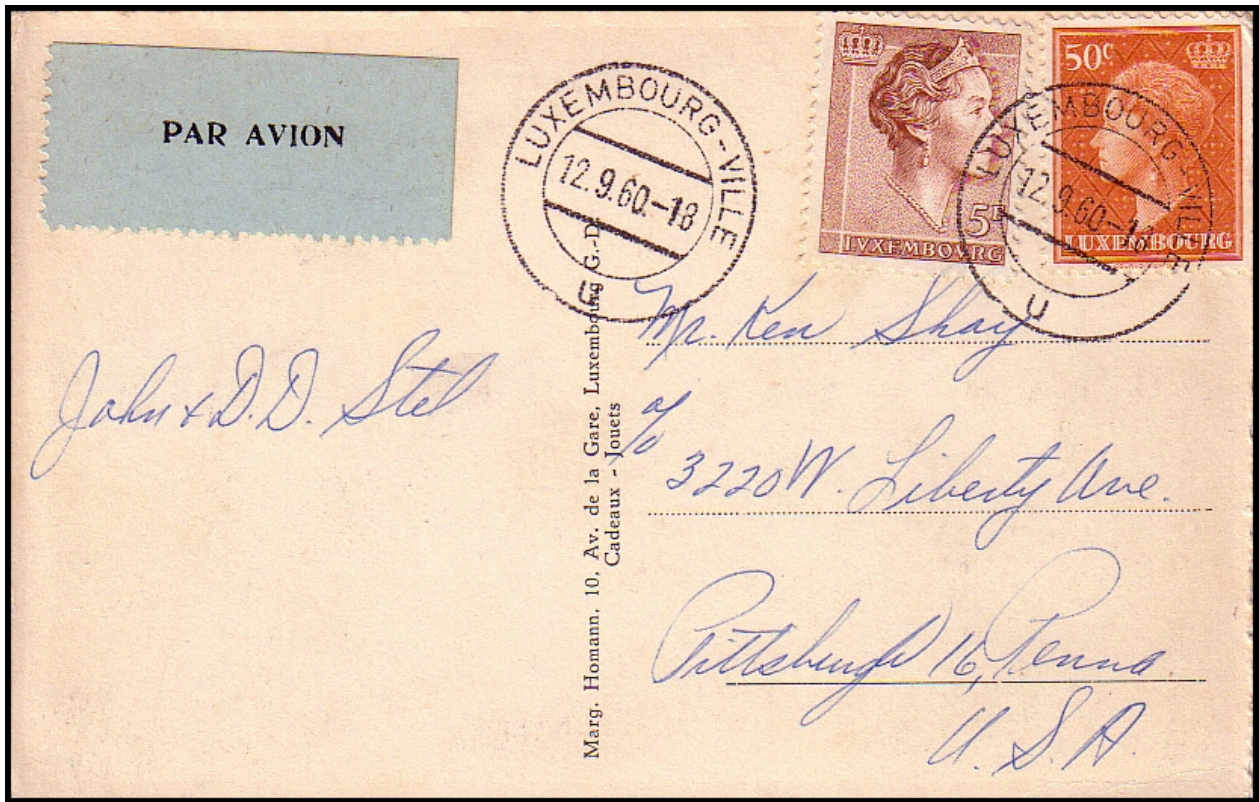 PAR AVION
LUXEMBOURG-VILLE
12.9.60.-18
u
5F
LVXEMBOVRG
50c
LUXEMBOURG
LUXEMBOURG-VILLE
12.9.60-18
u
John & D.D. Stel
Marg. Homann, 10, Av. de la Gare, Luxembourg G.-D.
Cadeaux - Jouets
Mr. Ken Shay
c/o
3220 W. Liberty Ave.
Pittsburgh 16, Penna.
U.S.A.